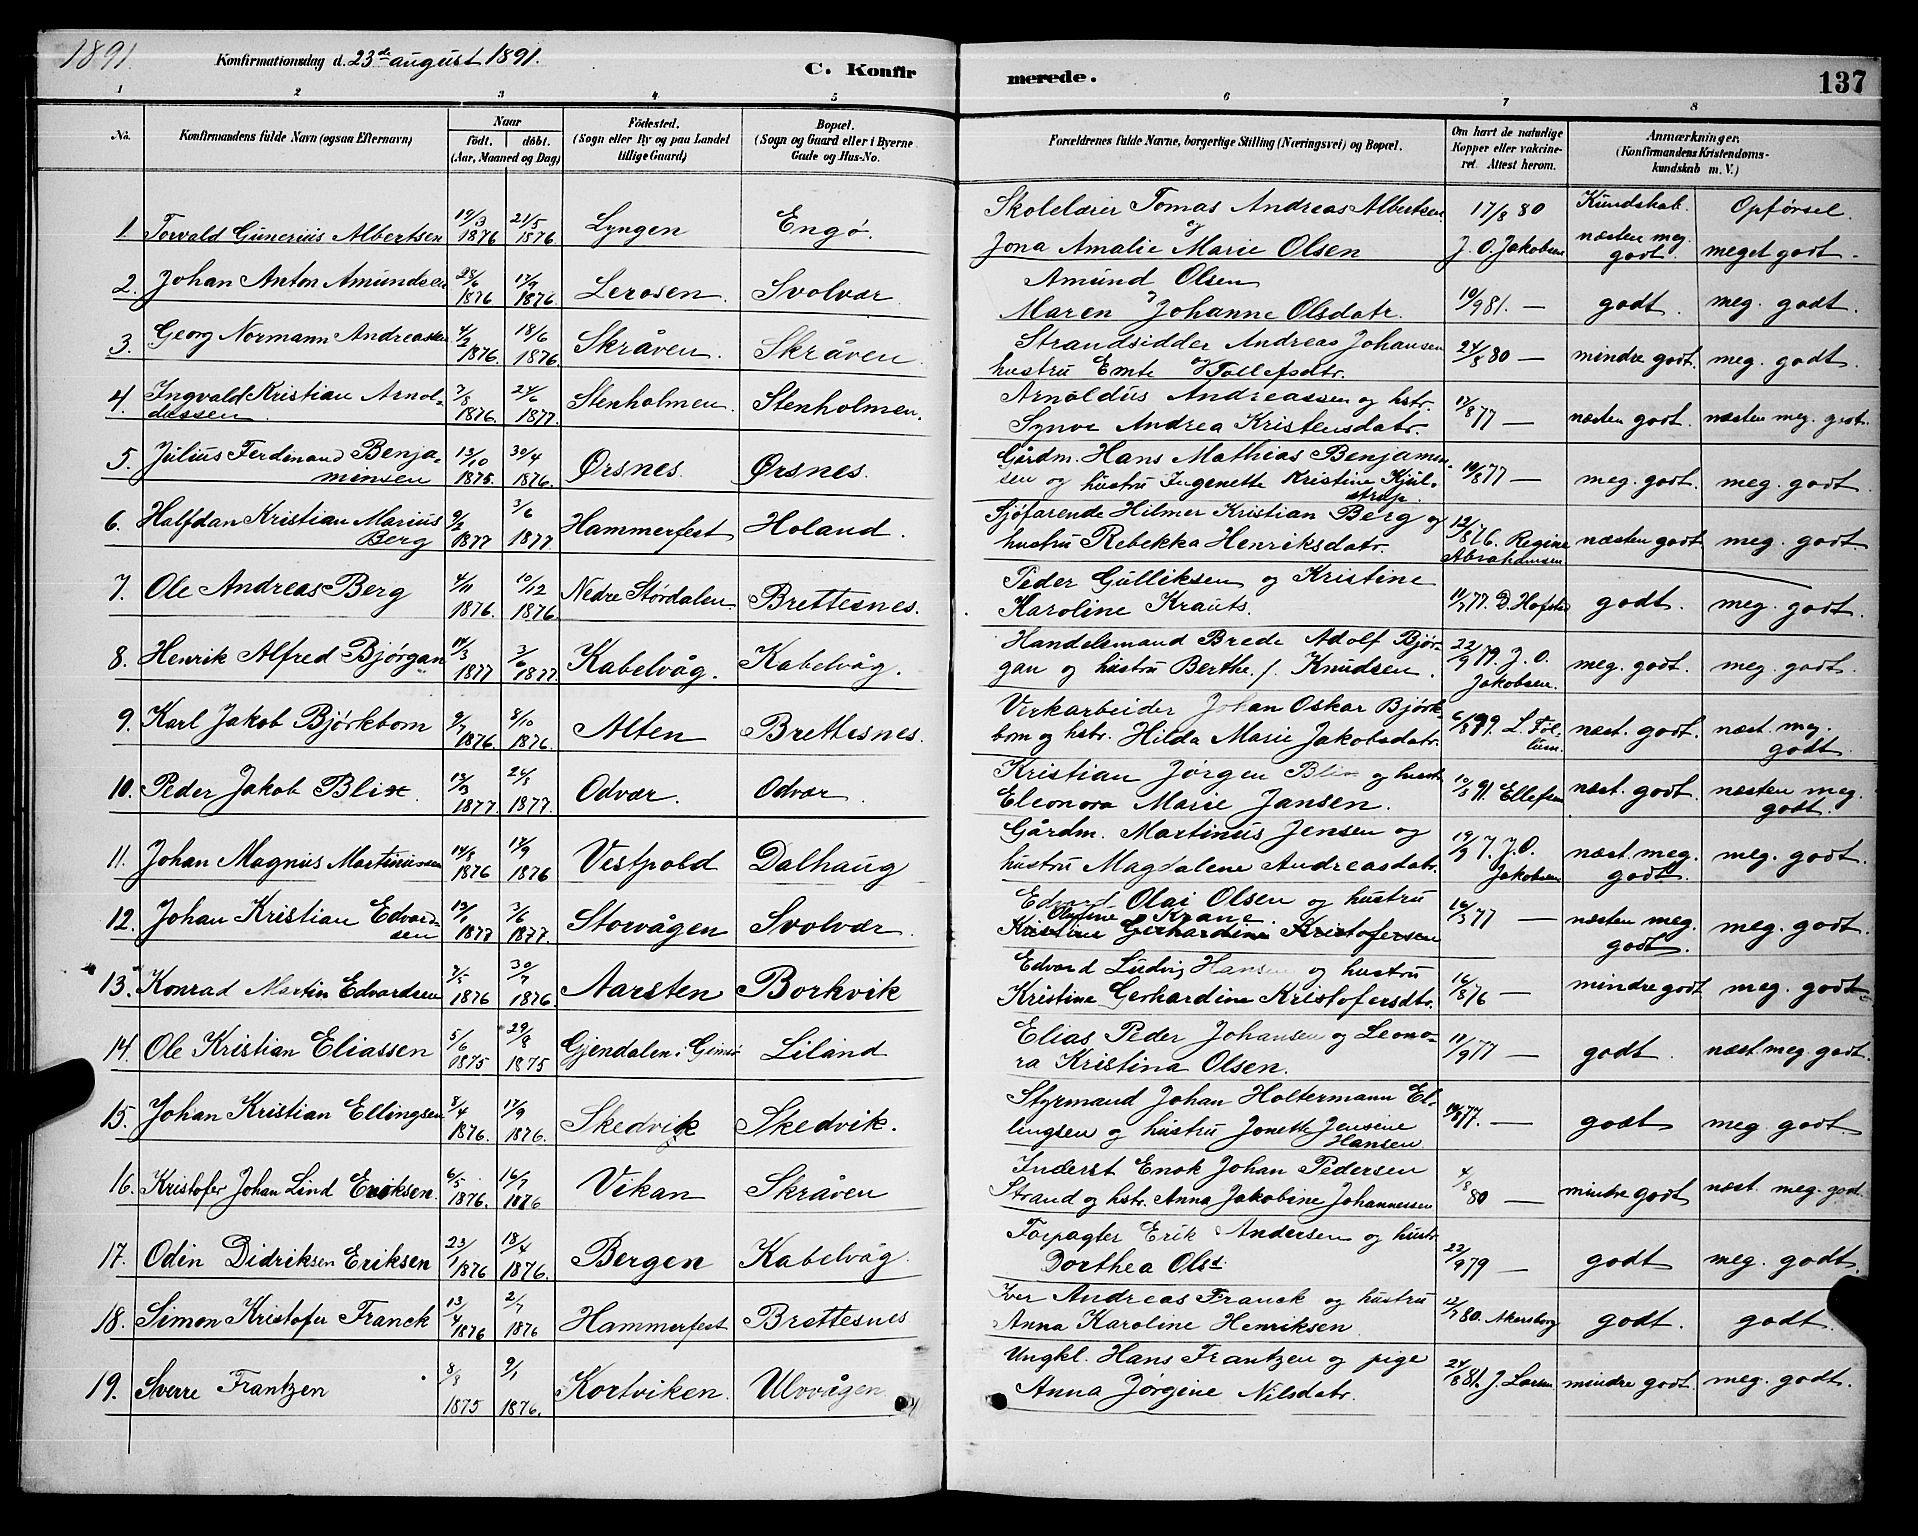 1891.
Konfirmationsdag d. 23de august 1891.
C. Konfirmerede.
137
1 2 3 4 5 6 7 8
No.
Konfirmandens fulde Navn (ogsaa Efternavn)
Naar
födt. döbt.
(Aar, Maaned og Dag)
Födested.
(Sogn eller By og paa Landet
tillige Gaard)
Bopæl.
(Sogn og Gaard eller i Byerne
Gade og Hus-No.
Forældrenes fulde Navne, borgerlige Stilling (Næringsvei) og Bopæl.
Om havt de naturlige
Kopper eller vakcine-
ret. Attest herom.
Anmærkninger.
(Konfirmandens Kristendoms-
kundskab m. V.)
Kundskab. Opførsel.
1. Torvald Gunerius Albertsen 19/3 1876 21/5 1876 Lyngen Engø. Skolelærer Tomas Andreas Albertsen og
Jona Amalie Marie Olsen 17/8 80 J. O. Jakobsen næsten meg. godt meget godt.
2. Johan Anton Amundsen 28/6 1876 17/9 1876 Lerosen. Svolvær. Amund Olsen
Maren Johanne Olsdatr. 10/9 81. — godt meg. godt
3. Georg Normann Andreassen 4/2 1876. 18/6 1876. Skråven. Skråven. Strandsidder Andreas Johansen
hustru Emte Tollefsdtr. 24/8 80 — mindre godt. meg. godt.
4. Ingvald Kristian Arnol-
dussen 7/8 1876. 24/6 1877. Stenholmen. Stenholmen. Arnoldus Andreassen og hstr.
Synve Andrea Kristensdatr. 17/8 77 — næsten godt næsten meg. godt.
5. Julius Ferdinand Benja-
minsen 13/10 1875. 30/4 1876. Ørsnes. Ørsnes. Gårdm. Hans Mathias Benjamin-
sen og hustru Ingenette Kristine Kjul-
strup. 10/8 77 — meg. godt. meg. godt.
6. Halfdan Kristian Marius
Berg 9/2 1877 3/6 1877. Hammerfest Holand. Sjøfarende Hilmer Kristian Berg og
hustru Rebekka Henriksdatr. 12/8 76. Regine
Abrahamsen næsten godt meg. godt.
7. Ole Andreas Berg 4/11 1876. 10/12 1876 Nedre Størdalen Brettesnes. Peder Gulliksen og Kristine
Karoline Krauts. 11/7 77. D. Hofstad godt. meg. godt.
8. Henrik Alfred Bjørgan 14/3 1877 3/6 1877 Kabelvåg. Kabelvåg. Handelsmand Brede Adolf Bjør-
gan og hustru Berthe f. Knudsen. 22/9 79. J. O.
Jakobsen. meg. godt. meg. godt.
9. Karl Jakob Bjørkbom 9/7 1876. 8/10 1876. Alten Brettesnes. Verkarbeider Johan Oskar Bjørk-
bom og hstr. Hilda Marie Jakobsdatr. 6/8 79. næst. godt. næst. meg.
godt.
10. Peder Jakob Blix. 13/3 1877. 24/8 1877. Odvær. Odvær. Kristian Jørgen Blix og hustr.
Eleonora Marie Jansen. 10/8 91. Ellefsen næst. godt. næsten meg.
godt.
11. Johan Magnus Martinussen 14/8 1876 17/9 1876 Vestpold Dalhaug Gårdm. Martinus Jensen og
hustru Magdalene Andreasdatr. J. O.
Jakobsen næst. meg.
godt. meg. godt.
12. Johan Kristian Edvard-
sen 12/1 1877 3/6 1877. Storvågen Svolvær. Edvard Olai Olsen og hustru
Olufine Krane.
Kristine Gerhardine Kristofersen 16/5 77 — næsten meg.
godt. meg. godt.
13. Konrad Martin Edvardsen 7/5 1876 30/7 1876. Aarsten Borkvik Edvard Ludvig Hansen og hustru
Kristine Gerhardine Kristofersdtr. 16/8 76 — mindre godt meg. godt
14. Ole Kristian Eliassen 5/6 1875 29/8 1875 Gjendalen i Gimsø Liland Elias Peder Johansen og Leono-
ra Kristina Olsen. 11/9 77 — godt. næst. meg. godt.
15. Johan Kristian Ellingsen 8/4 1876. 17/9 1876. Skedvik Skedvik. Styrmand Johan Holtermann El-
lingsen og hustru Jonette Jensine
Hansen 10/8 77. — godt meg. godt.
16. Kristofer Johan Lind Eriksen. 6/5 1876. 16/7 1876 Vikan Skråven Inderst Enok Johan Pedersen
Strand og hstr. Anna Jakobine Johannessen 4/8 80 — mindre godt næst. meg. godt.
17. Odin Didriksen Eriksen 23/1 1876 18/4 1876. Bergen Kabelvåg. Forpagter Erik Andersen og hustr.
Dorthea Olsd. 22/9 79 — godt meg. godt.
18. Simon Kristofer Franck 13/4 1876 2/7 1876 Hammerfest Brettesnes Iver Andreas Franck og hustru
Anna Karoline Henriksen. 12/7 80. Akersborg godt. godt.
19. Sverre Frantzen 8/8 1875 9/1 1876. Kortviken. Ulvvågen Ungkl. Hans Frantzen og pige
Anna Jørgine Nilsdatr. 24/8 81. J. Larsen mindre godt. meg. godt.